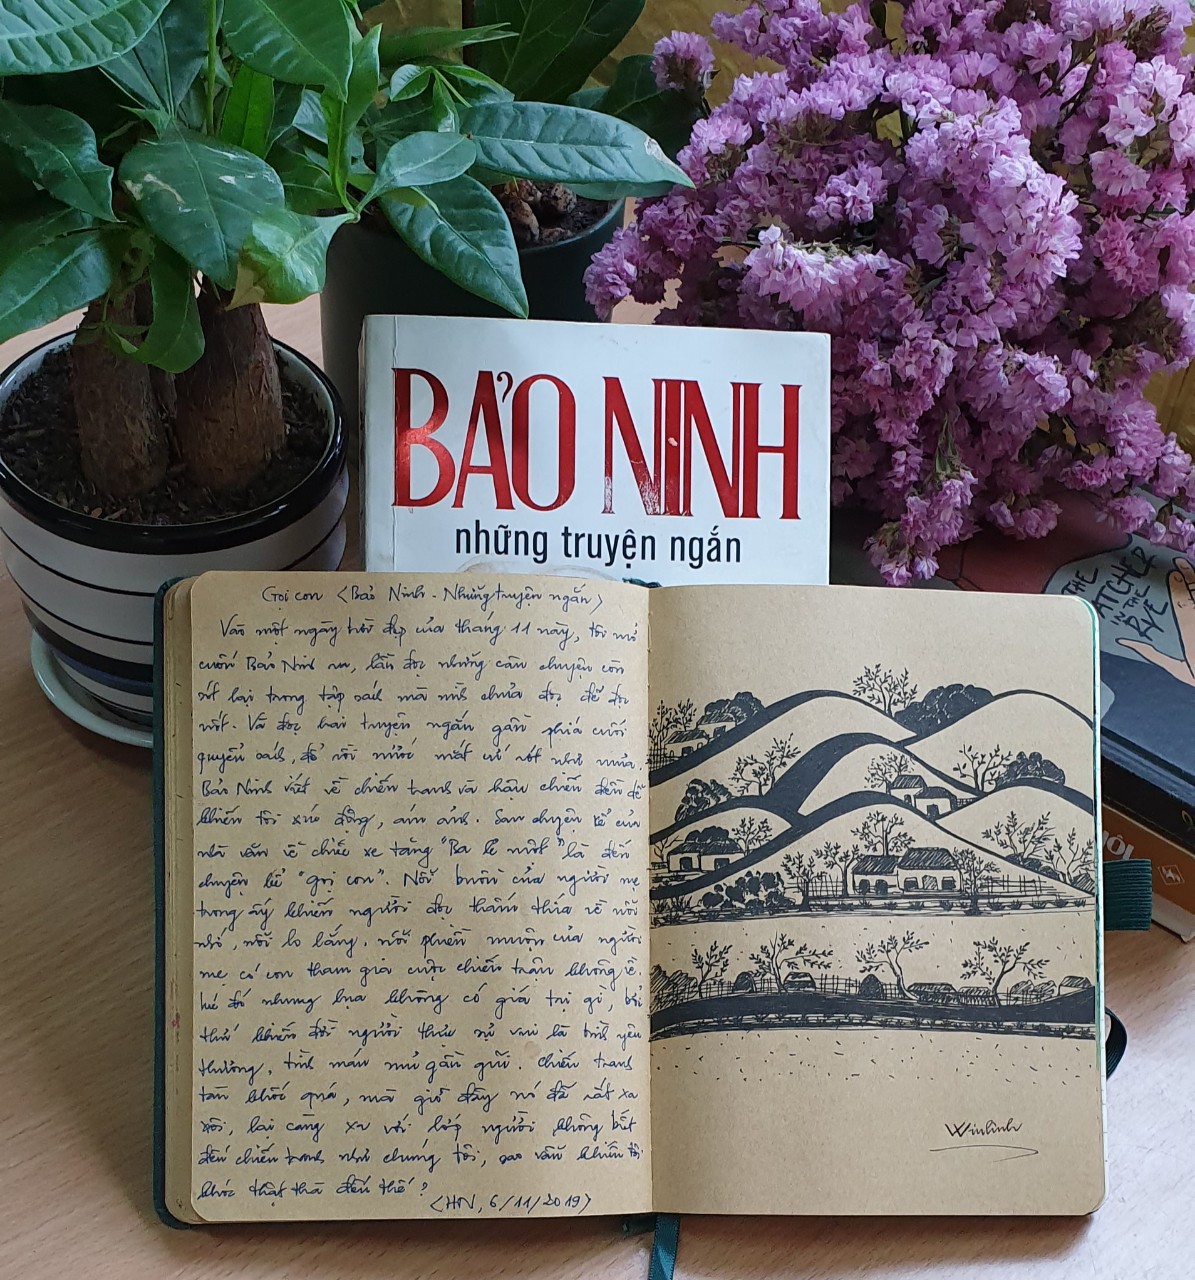 BẢO NINH
những truyện ngắn
THE
CATCHER
IN THE
RYE
Gọi con <Bảo Ninh - Những truyện ngắn>
Vào một ngày trời đẹp của tháng 11 này, tôi mở
cuốn Bảo Ninh ra, lần đọc những câu chuyện còn
sót lại trong tập sách mà mình chưa đọc để đọc
nốt. Và đọc hai truyện ngắn gần phía cuối
quyển sách, để rồi nước mắt cứ rớt như mưa.
Bảo Ninh viết về chiến tranh và hậu chiến đều để
khiến tôi xúc động, ám ảnh. Sau chuyện kể của
nhà văn về chiếc xe tăng "Ba lẻ một" là đến
chuyện kể "gọi con". Nỗi buồn của người mẹ
trong ấy khiến người đọc thấm thía về nỗi
nhớ, nỗi lo lắng, nỗi phiền muộn của người
mẹ có con tham gia cuộc chiến trận không về.
hé đó nhưng lụa không có giá trị gì, bởi
thứ khiến đời người thực sự vui là tình yêu
thương, tình máu mủ gần gũi. Chiến tranh
tàn khốc quá, mà giờ đây nó đã rất xa
xôi, lại càng xa với lớp người không biết
đến chiến tranh như chúng tôi, sao vẫn khiến tôi
khóc thật thà đến thế?
<HN, 6/11/2019>
Winlinh